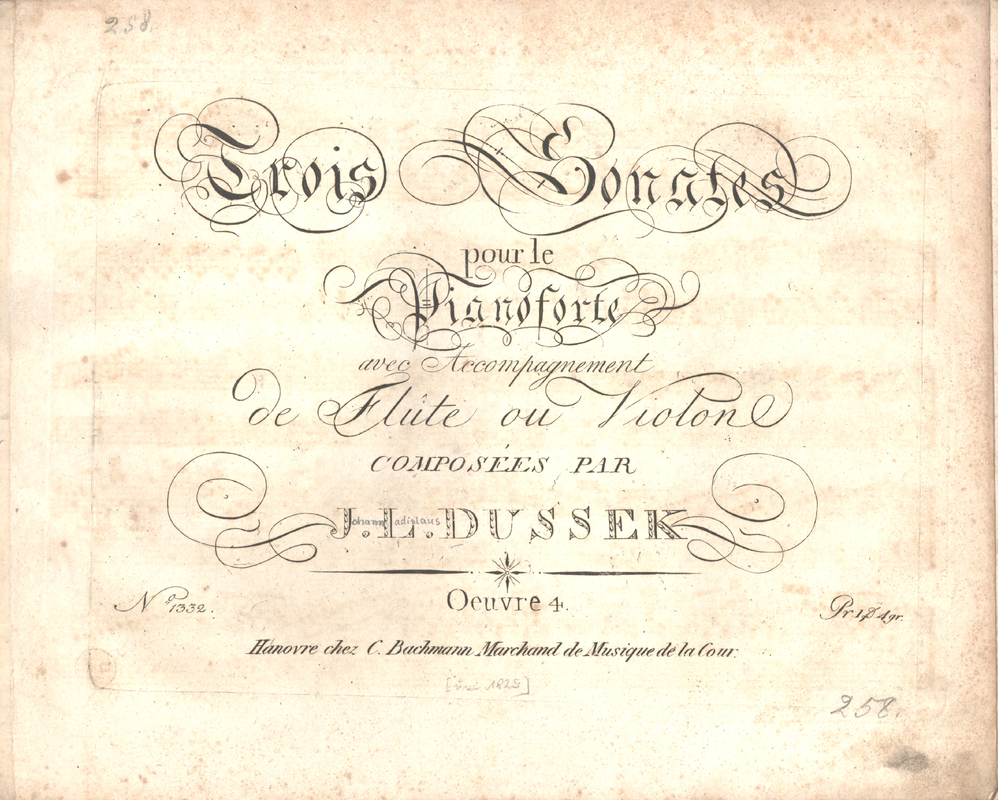 258.
Trois Sonates
pour le
Pianoforte
avec Accompagnement
de Flûte ou Violon
COMPOSÉES PAR
J.L. DUSSEK
ohann adislaus
Oeuvre 4.
Nº 1332.
Pr. 1 4 gr.
Hanovre chez C. Bachmann Marchand de Musique de la Cour.
258.